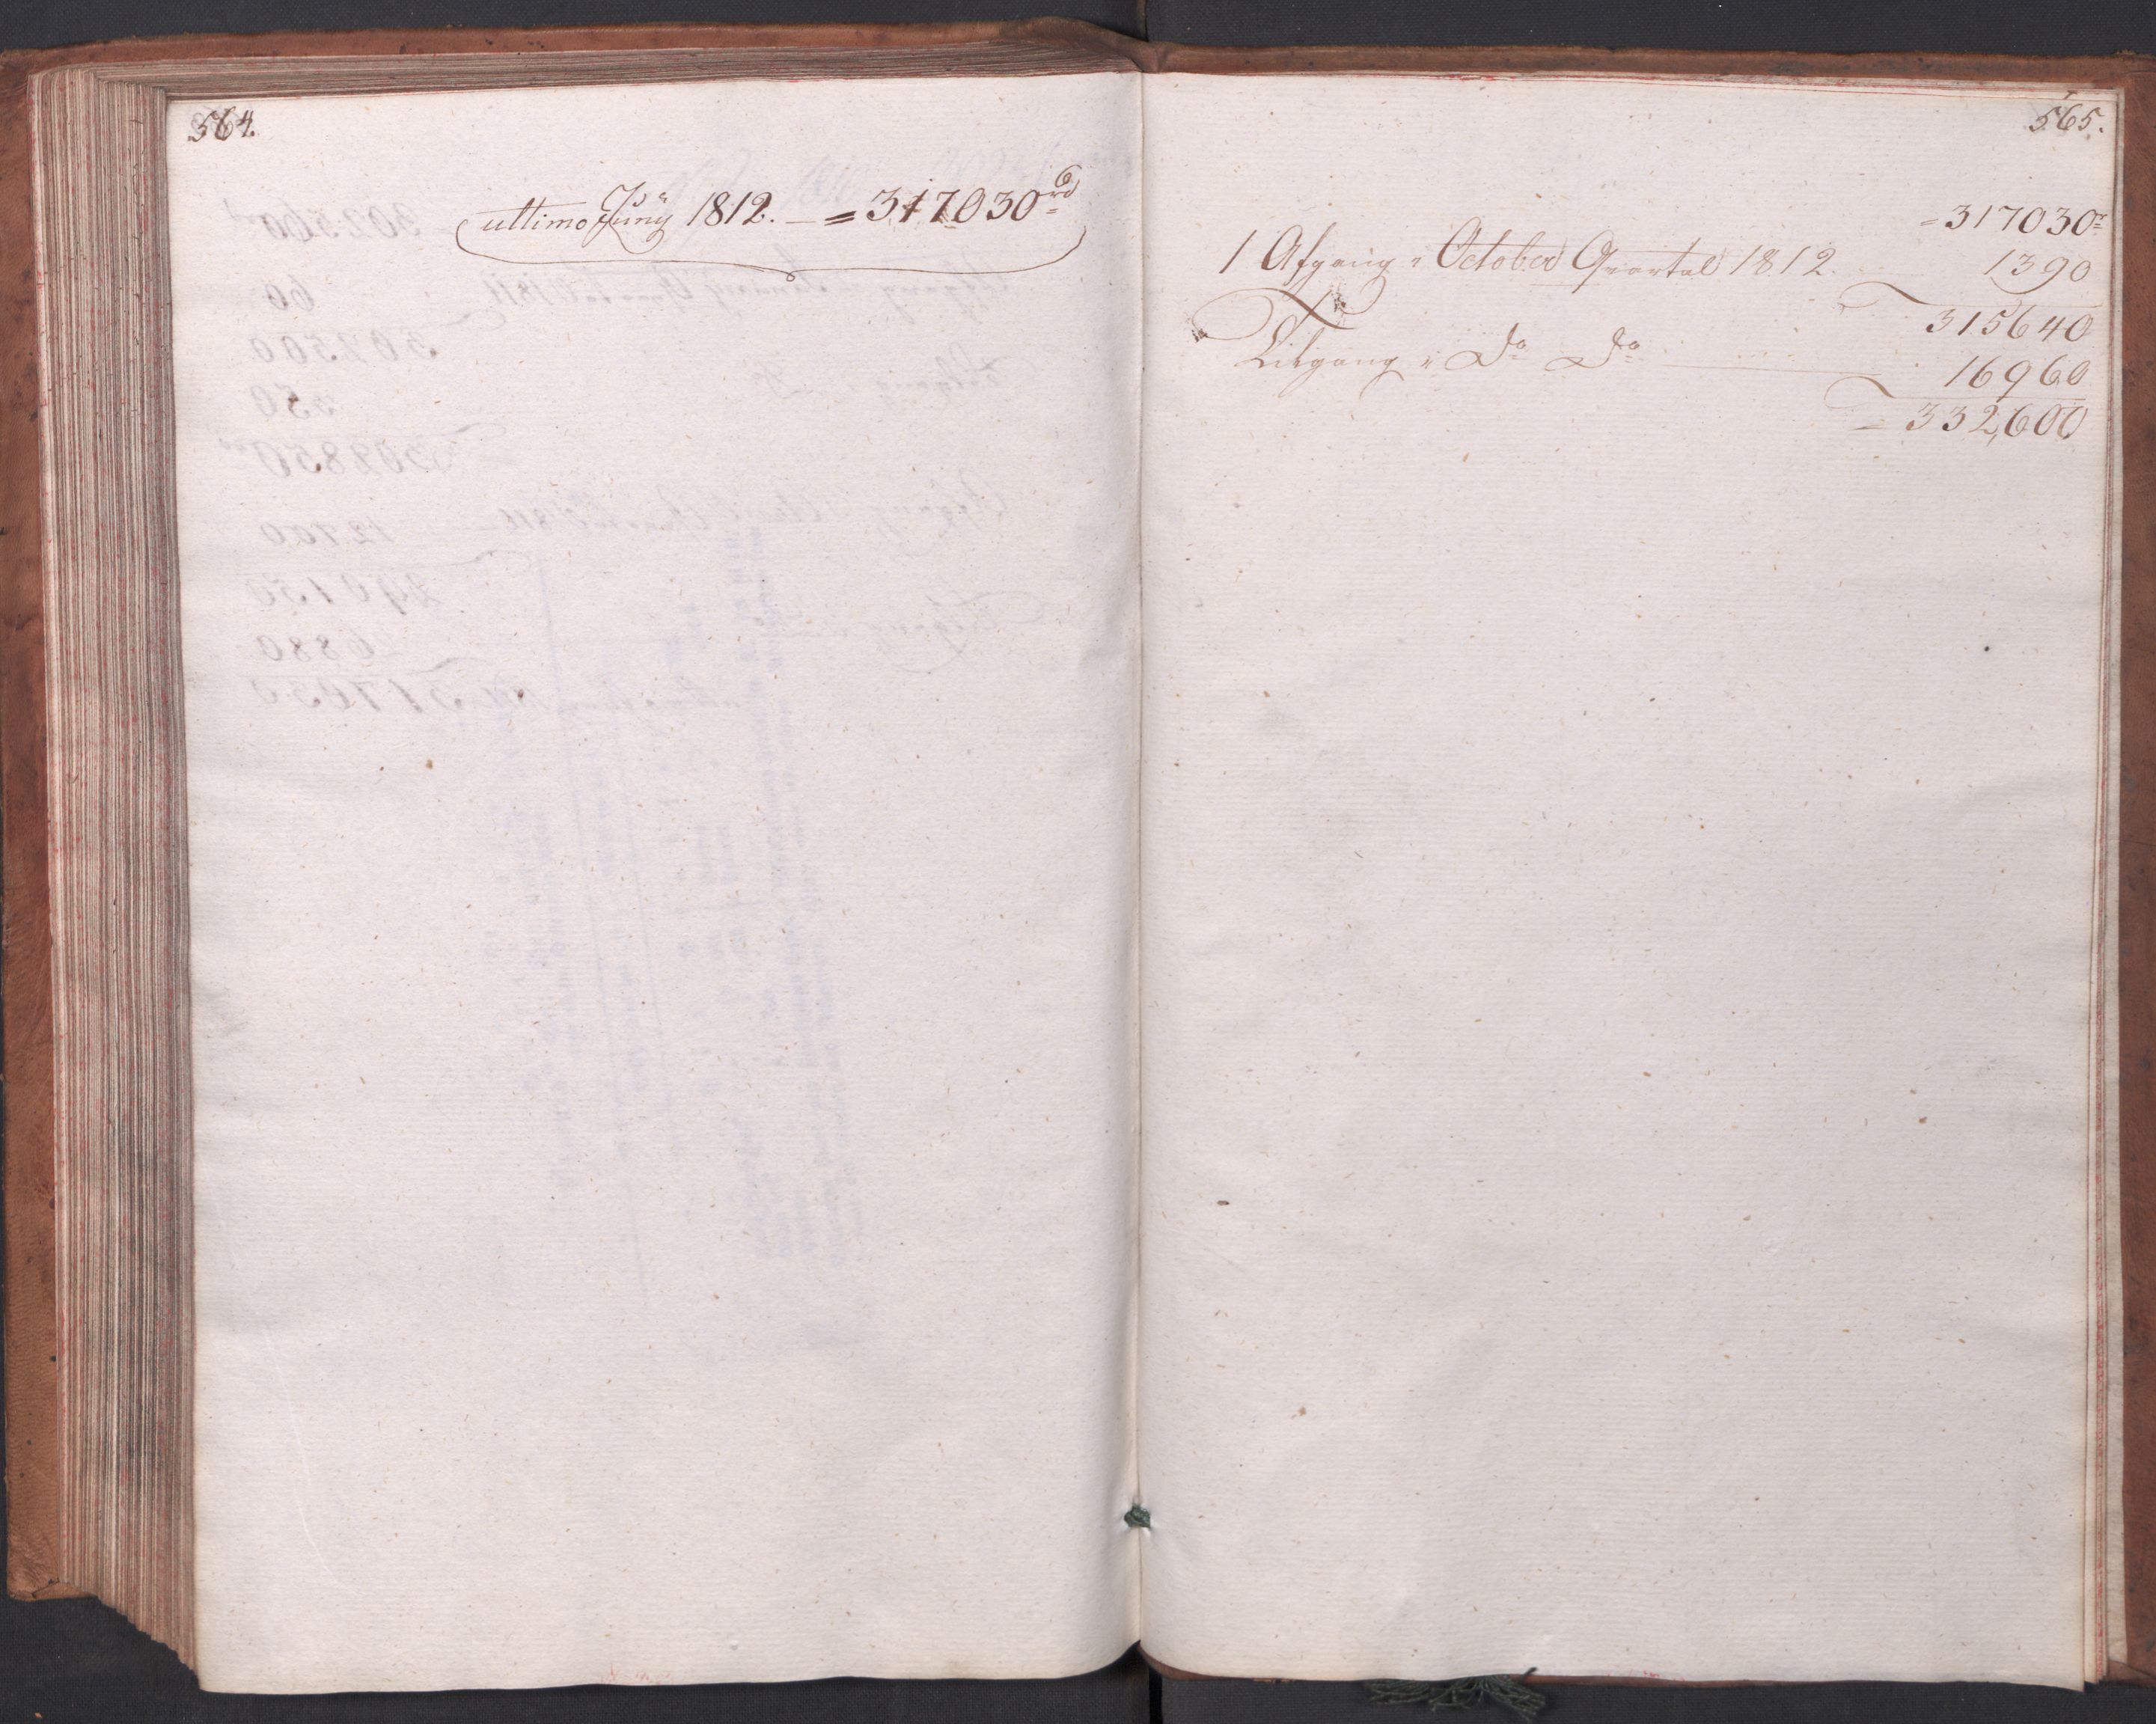 564.
ultimo Junÿ 1812. — = 317030 rd
565.
= 317030 r
1 Afgang i October Qvartal 1812. 1390
315640
Tilgang i Do Do 16960
= 332,600